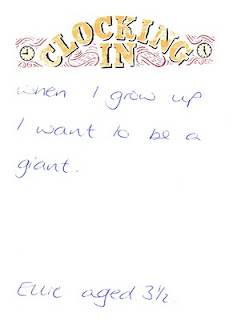 CLOCKING
IN
When I grow up
I want to be a
giant.
Ellie aged 3½